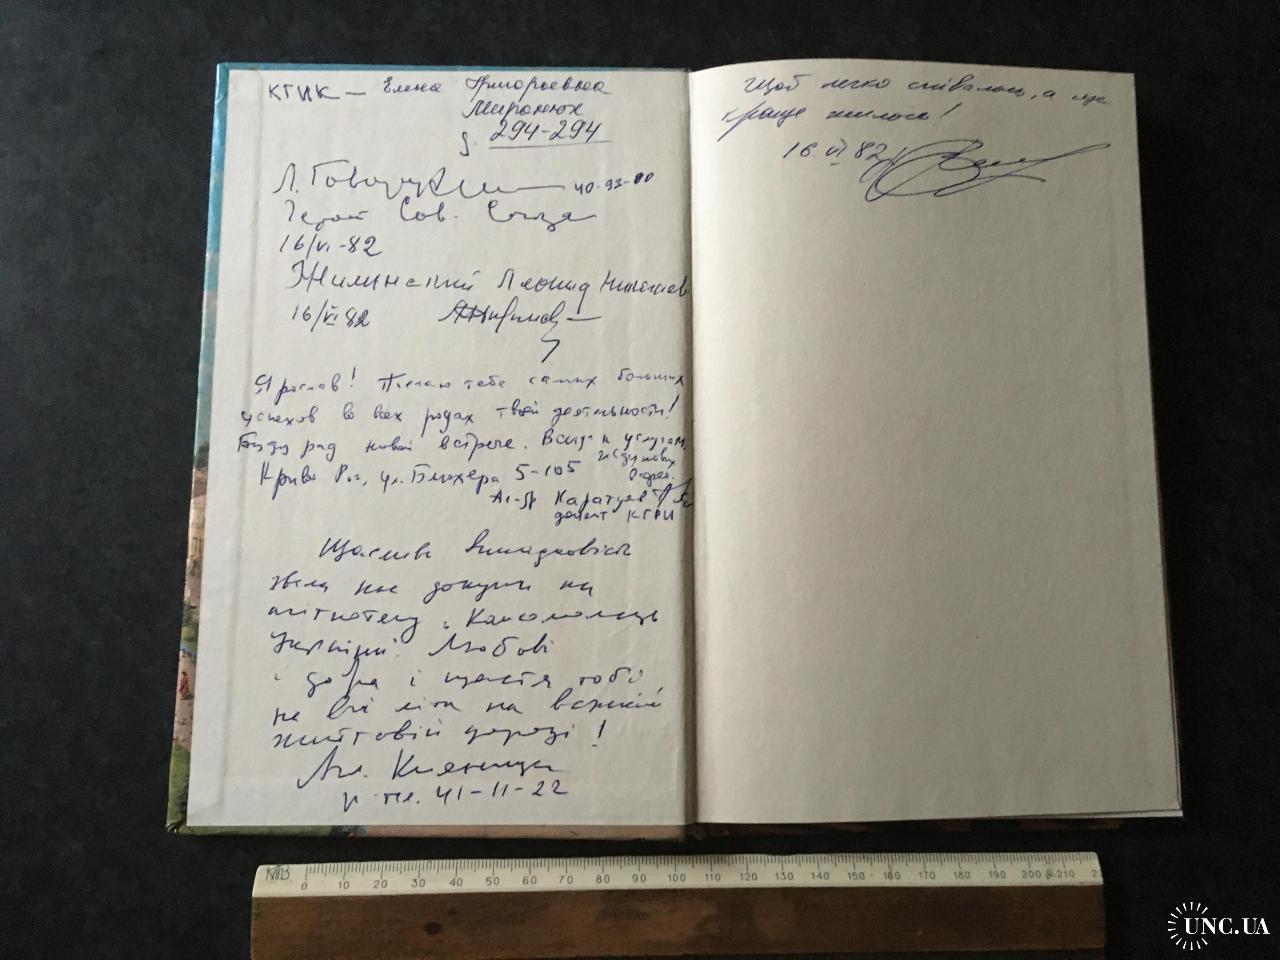 КГИК — Елена Григорьевна
Миронюк
д. 294-294
Л. 40-93-00
Герой Сов. Союза
16/VI-82
Жилинский Леонид
16/VI 82
Ярослав! Желаю тебе самых больших
успехов во всех родах твоей деятельности!
Буду рад новой встрече. Всегда к услугам
Кривой Рог, ул. Блюхера 5-105
Ал-др Каратуев
доцент КГРИ
Щаслива випадковість
звела нас докупи на
агітпоїзд "Комсомолець
України". Любові
і добра і щастя тобі
на всі літа на важкій
життєвій дорозі!
р. тел. 41-11-22
Щоб легко співалось, а ще
краще жилось!
16.VI 82
МПЗ
0 10 20 30 40 50 60 70 80 90 100 110 120 130 140 150 160 170 180 190 200 210
UNC.UA